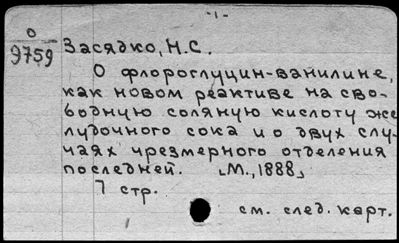 -1-
О
9759
Засядко, Н.С.
О флороглуцин-ванилине,
как новом реактиве на сво-
бодную соляную кислоту же
лудочного сока и о двух слу-
чаях чрезмерного отделения
последней. [М., 1888]
7 стр.
см. след. карт.